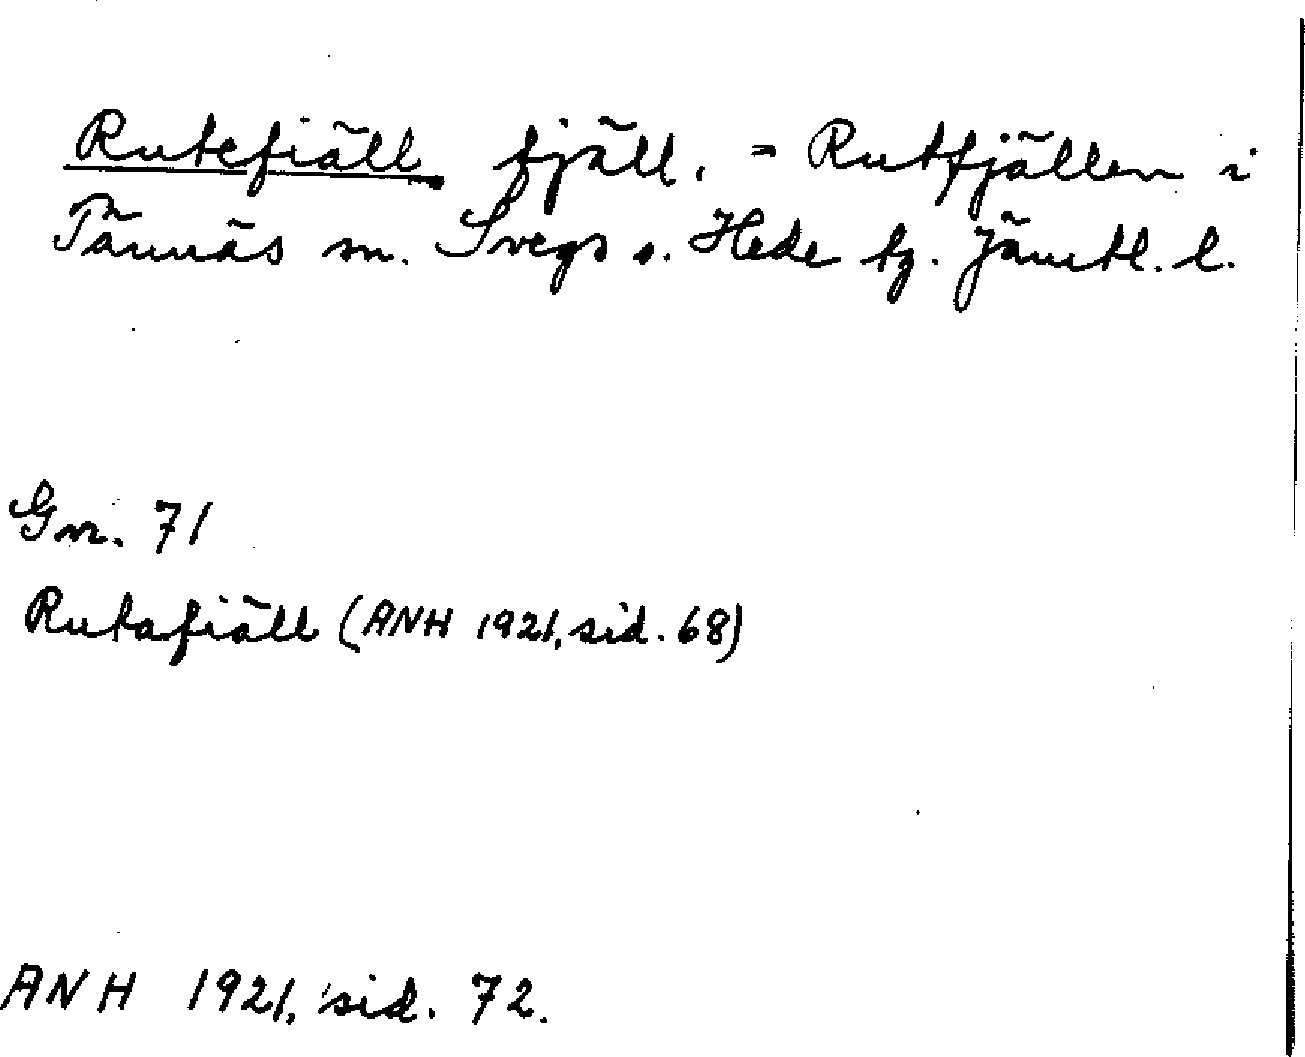 Rutefiäll, fjäll. = Rutfjällen i
Tännäs sn. Svegs o. Hede tg. Jämtl. l.
Gm. 71
Rutafiäll (ANH 1921, sid. 68)
ANH 1921, sid. 72.